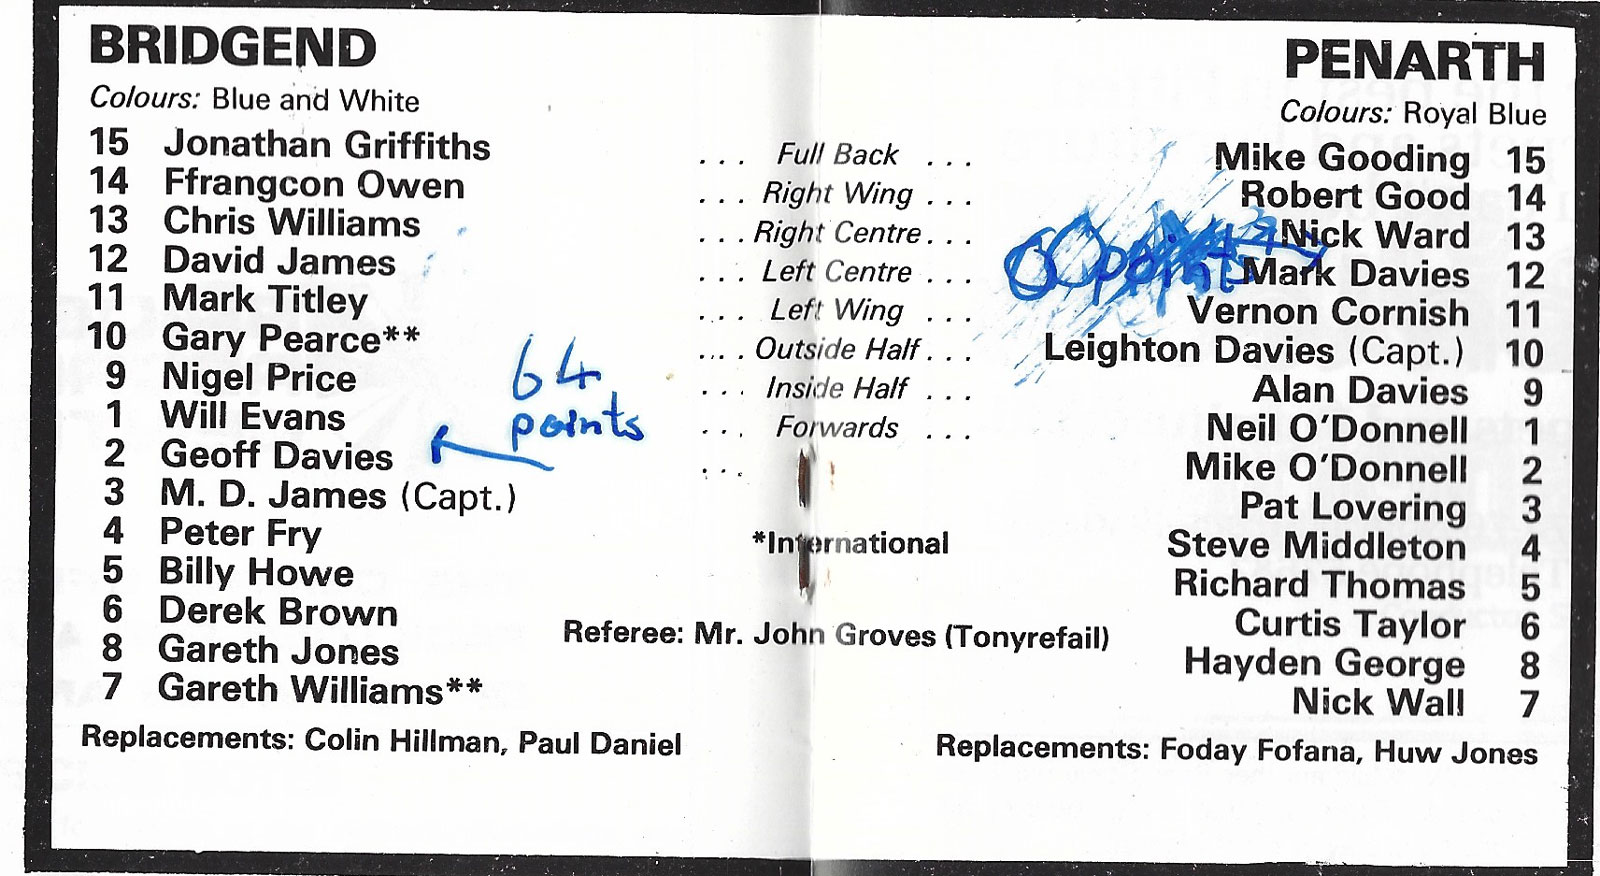 BRIDGEND
Colours: Blue and White
15 Jonathan Griffiths
14 Ffrangcon Owen
13 Chris Williams
12 David James
11 Mark Titley
10 Gary Pearce**
9 Nigel Price
1 Will Evans
2 Geoff Davies
3 M. D. James (Capt.)
4 Peter Fry
5 Billy Howe
6 Derek Brown
8 Gareth Jones
7 Gareth Williams**
Replacements: Colin Hillman, Paul Daniel
64
points
... Full Back ...
... Right Wing ...
... Right Centre ...
... Left Centre ...
... Left Wing ...
.... Outside Half ...
... Inside Half ...
... Forwards ...
...
*International
Referee: Mr. John Groves (Tonyrefail)
PENARTH
Colours: Royal Blue
Mike Gooding 15
Robert Good 14
Nick Ward 13
Mark Davies 12
Vernon Cornish 11
Leighton Davies (Capt.) 10
Alan Davies 9
Neil O'Donnell 1
Mike O'Donnell 2
Pat Lovering 3
Steve Middleton 4
Richard Thomas 5
Curtis Taylor 6
Hayden George 8
Nick Wall 7
Replacements: Foday Fofana, Huw Jones